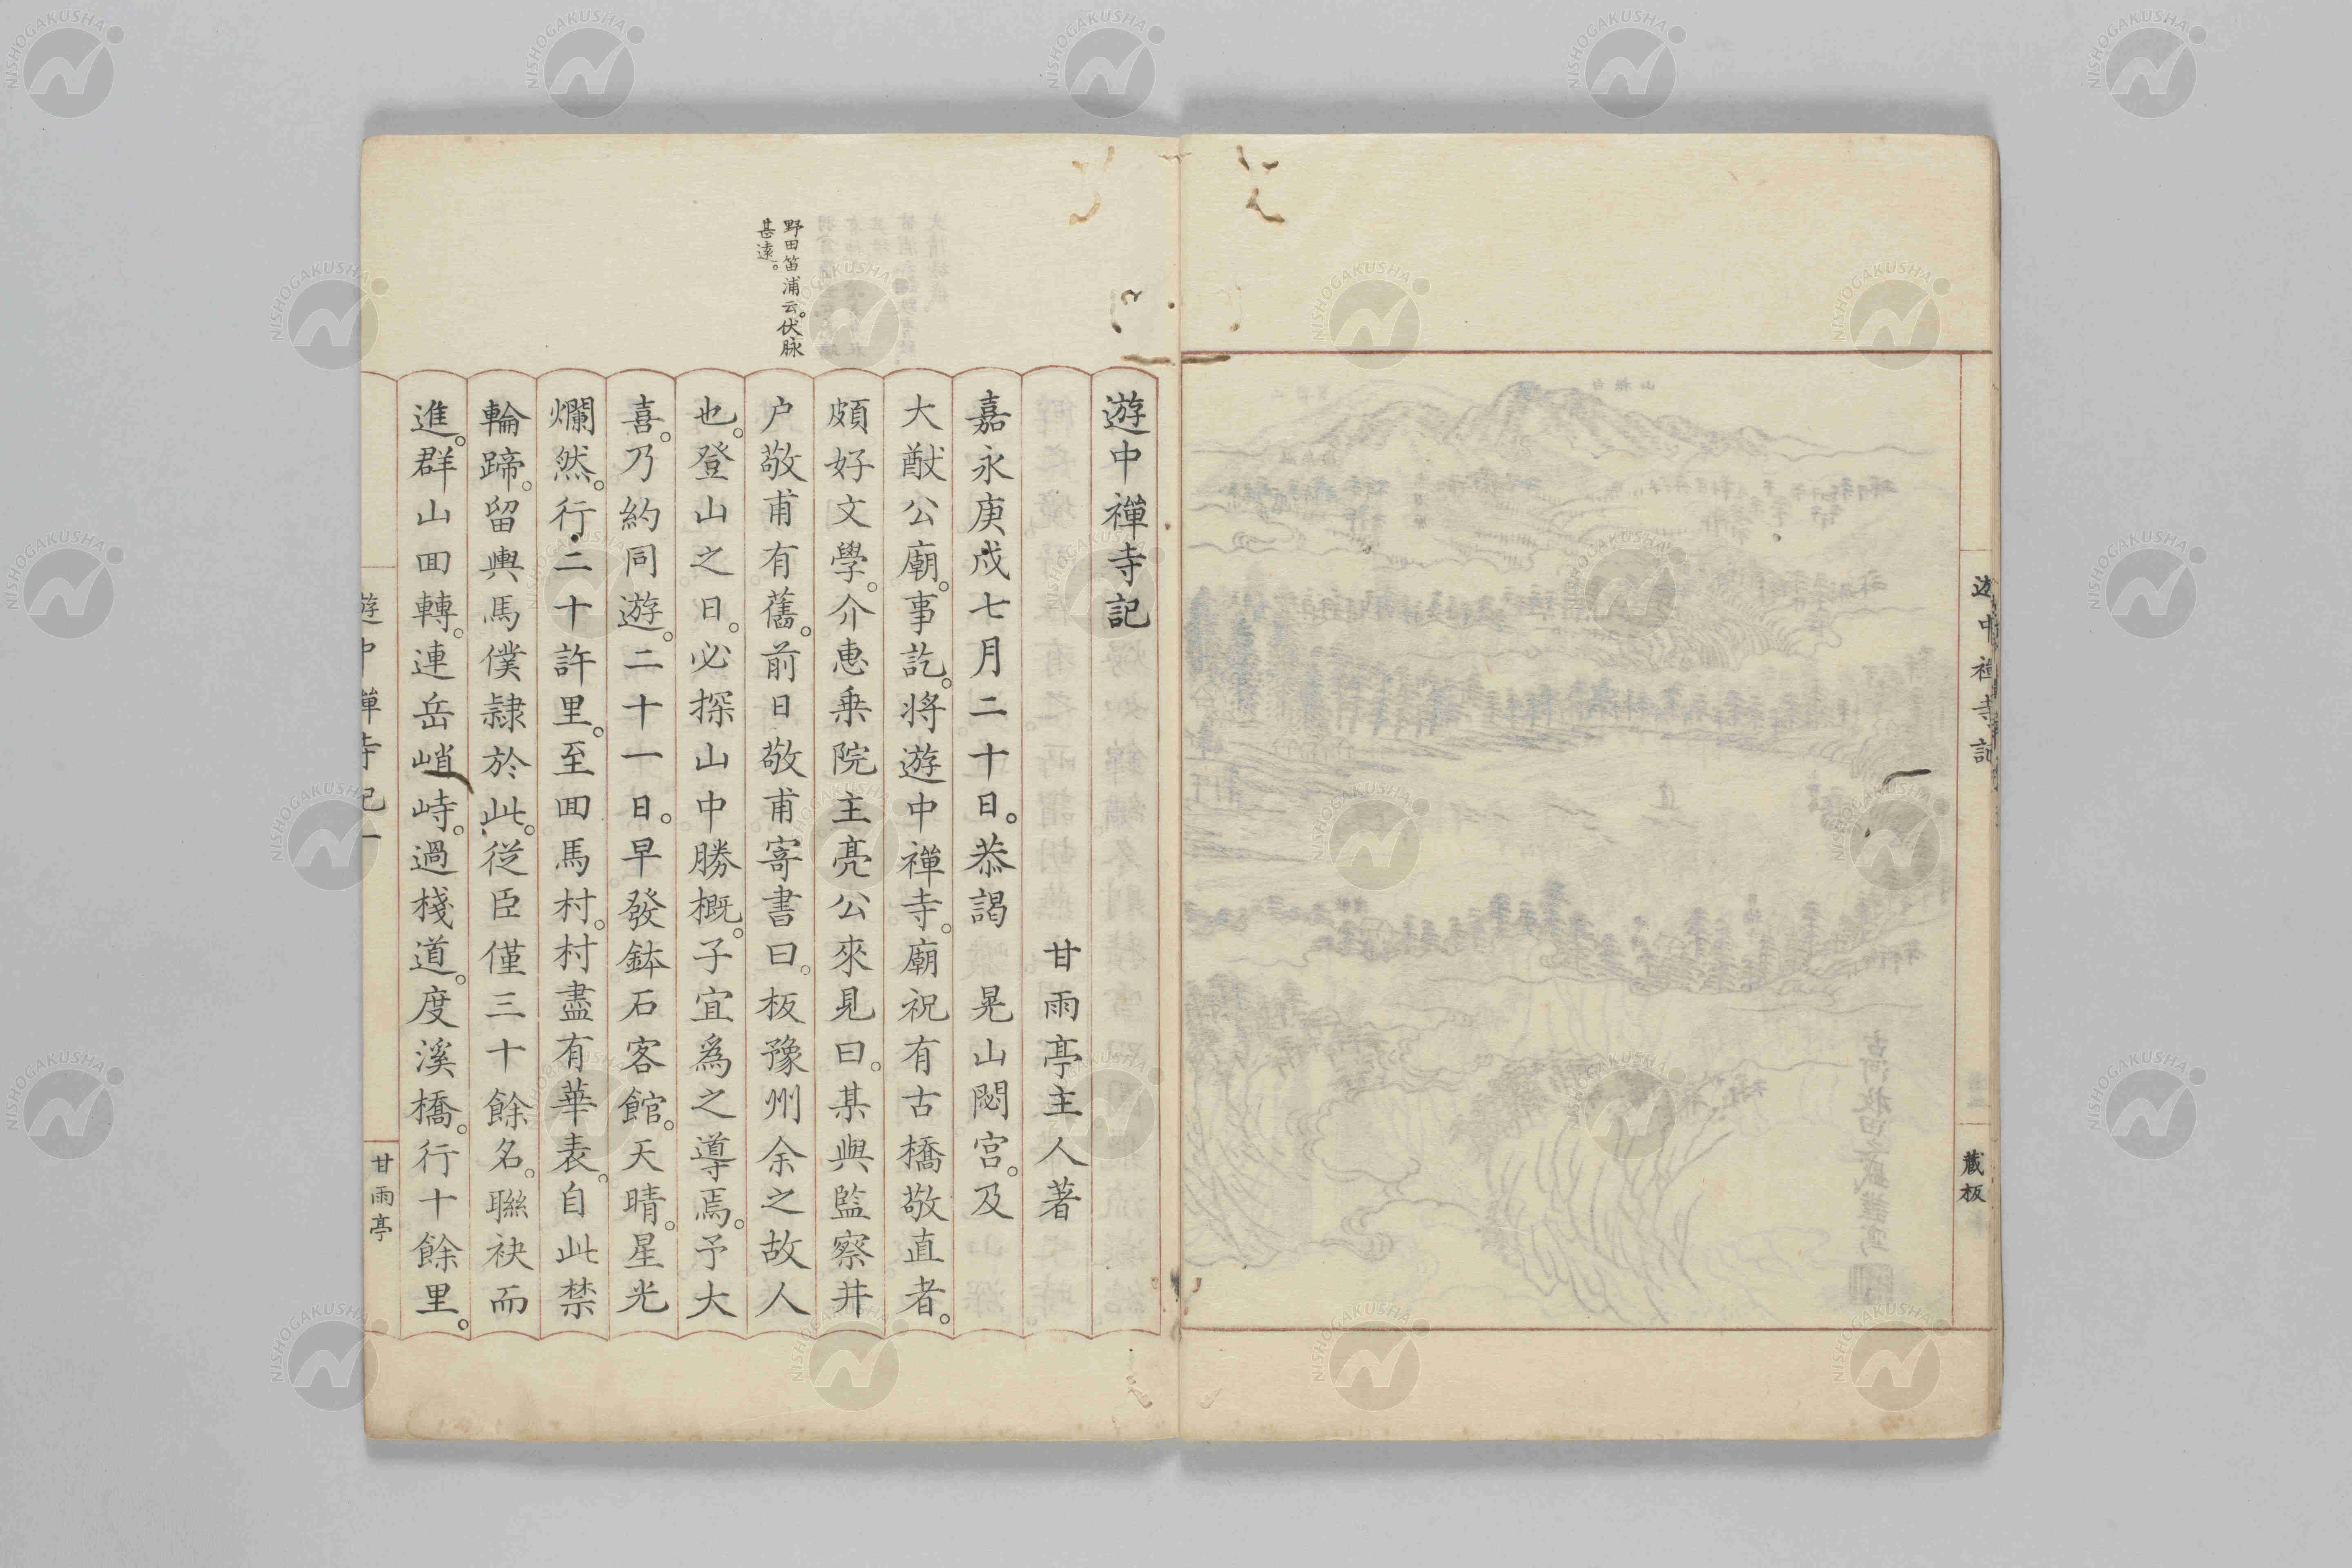 遊中禪寺記
藏板
遊中禪寺記
甘雨亭主人著
嘉永庚戌七月二十日。恭謁　晃山閟宮。及
大猷公廟。事訖。將遊中禪寺。廟祝有古橋敬直者。
頗好文學。介惠乗院主亮公來見曰。某與監察井
户敬甫有舊。前日敬甫寄書曰。板豫州余之故人
也。登山之日。必探山中勝概。子宜爲之導焉。予大
喜。乃約同遊。二十一日。早發鉢石客館。天晴。星光
爛然。行二十許里。至回馬村。村盡有華表。自此禁
輪蹄。留輿馬僕隷於此。從臣僅三十餘名。聯袂而
進。群山回轉。連岳峭峙。過棧道。度溪橋。行十餘里。
野田笛浦云。伏脉
甚遠。
遊中禪寺記一
甘雨亭
NISHOGAKUSHA